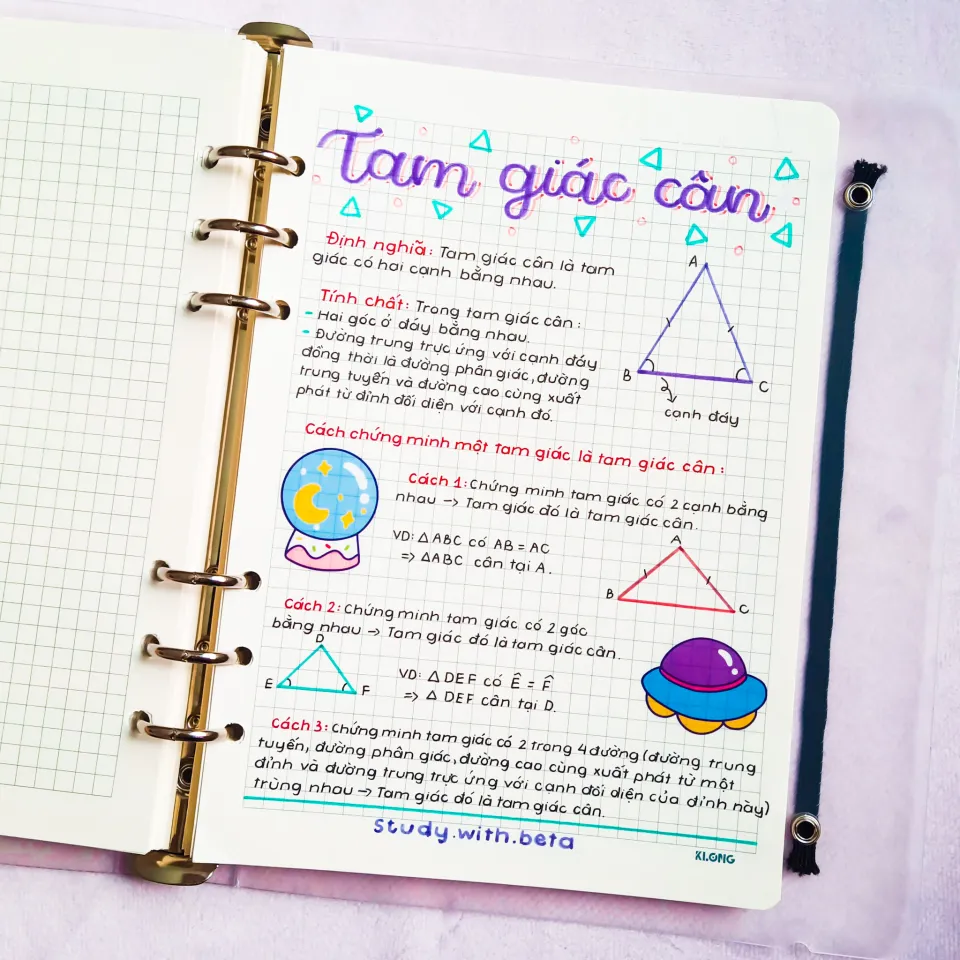 Tam giác cân
Định nghĩa: Tam giác cân là tam
giác có hai cạnh bằng nhau.
Tính chất: Trong tam giác cân:
- Hai góc ở đáy bằng nhau.
- Đường trung trực ứng với cạnh đáy
đồng thời là đường phân giác, đường
trung tuyến và đường cao cùng xuất
phát từ đỉnh đối diện với cạnh đó.
A
B
C
cạnh đáy
Cách chứng minh một tam giác là tam giác cân:
Cách 1: Chứng minh tam giác có 2 cạnh bằng
nhau -> Tam giác đó là tam giác cân.
VD: △ABC có AB = AC
=> △ABC cân tại A.
A
B
C
Cách 2: Chứng minh tam giác có 2 góc
bằng nhau -> Tam giác đó là tam giác cân.
D
E
F
VD: △DEF có Ê = F̂
=> △DEF cân tại D.
Cách 3: Chứng minh tam giác có 2 trong 4 đường (đường trung
tuyến, đường phân giác, đường cao cùng xuất phát từ một
đỉnh và đường trung trực ứng với cạnh đối diện của đỉnh này)
trùng nhau -> Tam giác đó là tam giác cân.
study.with.beta
KLONG